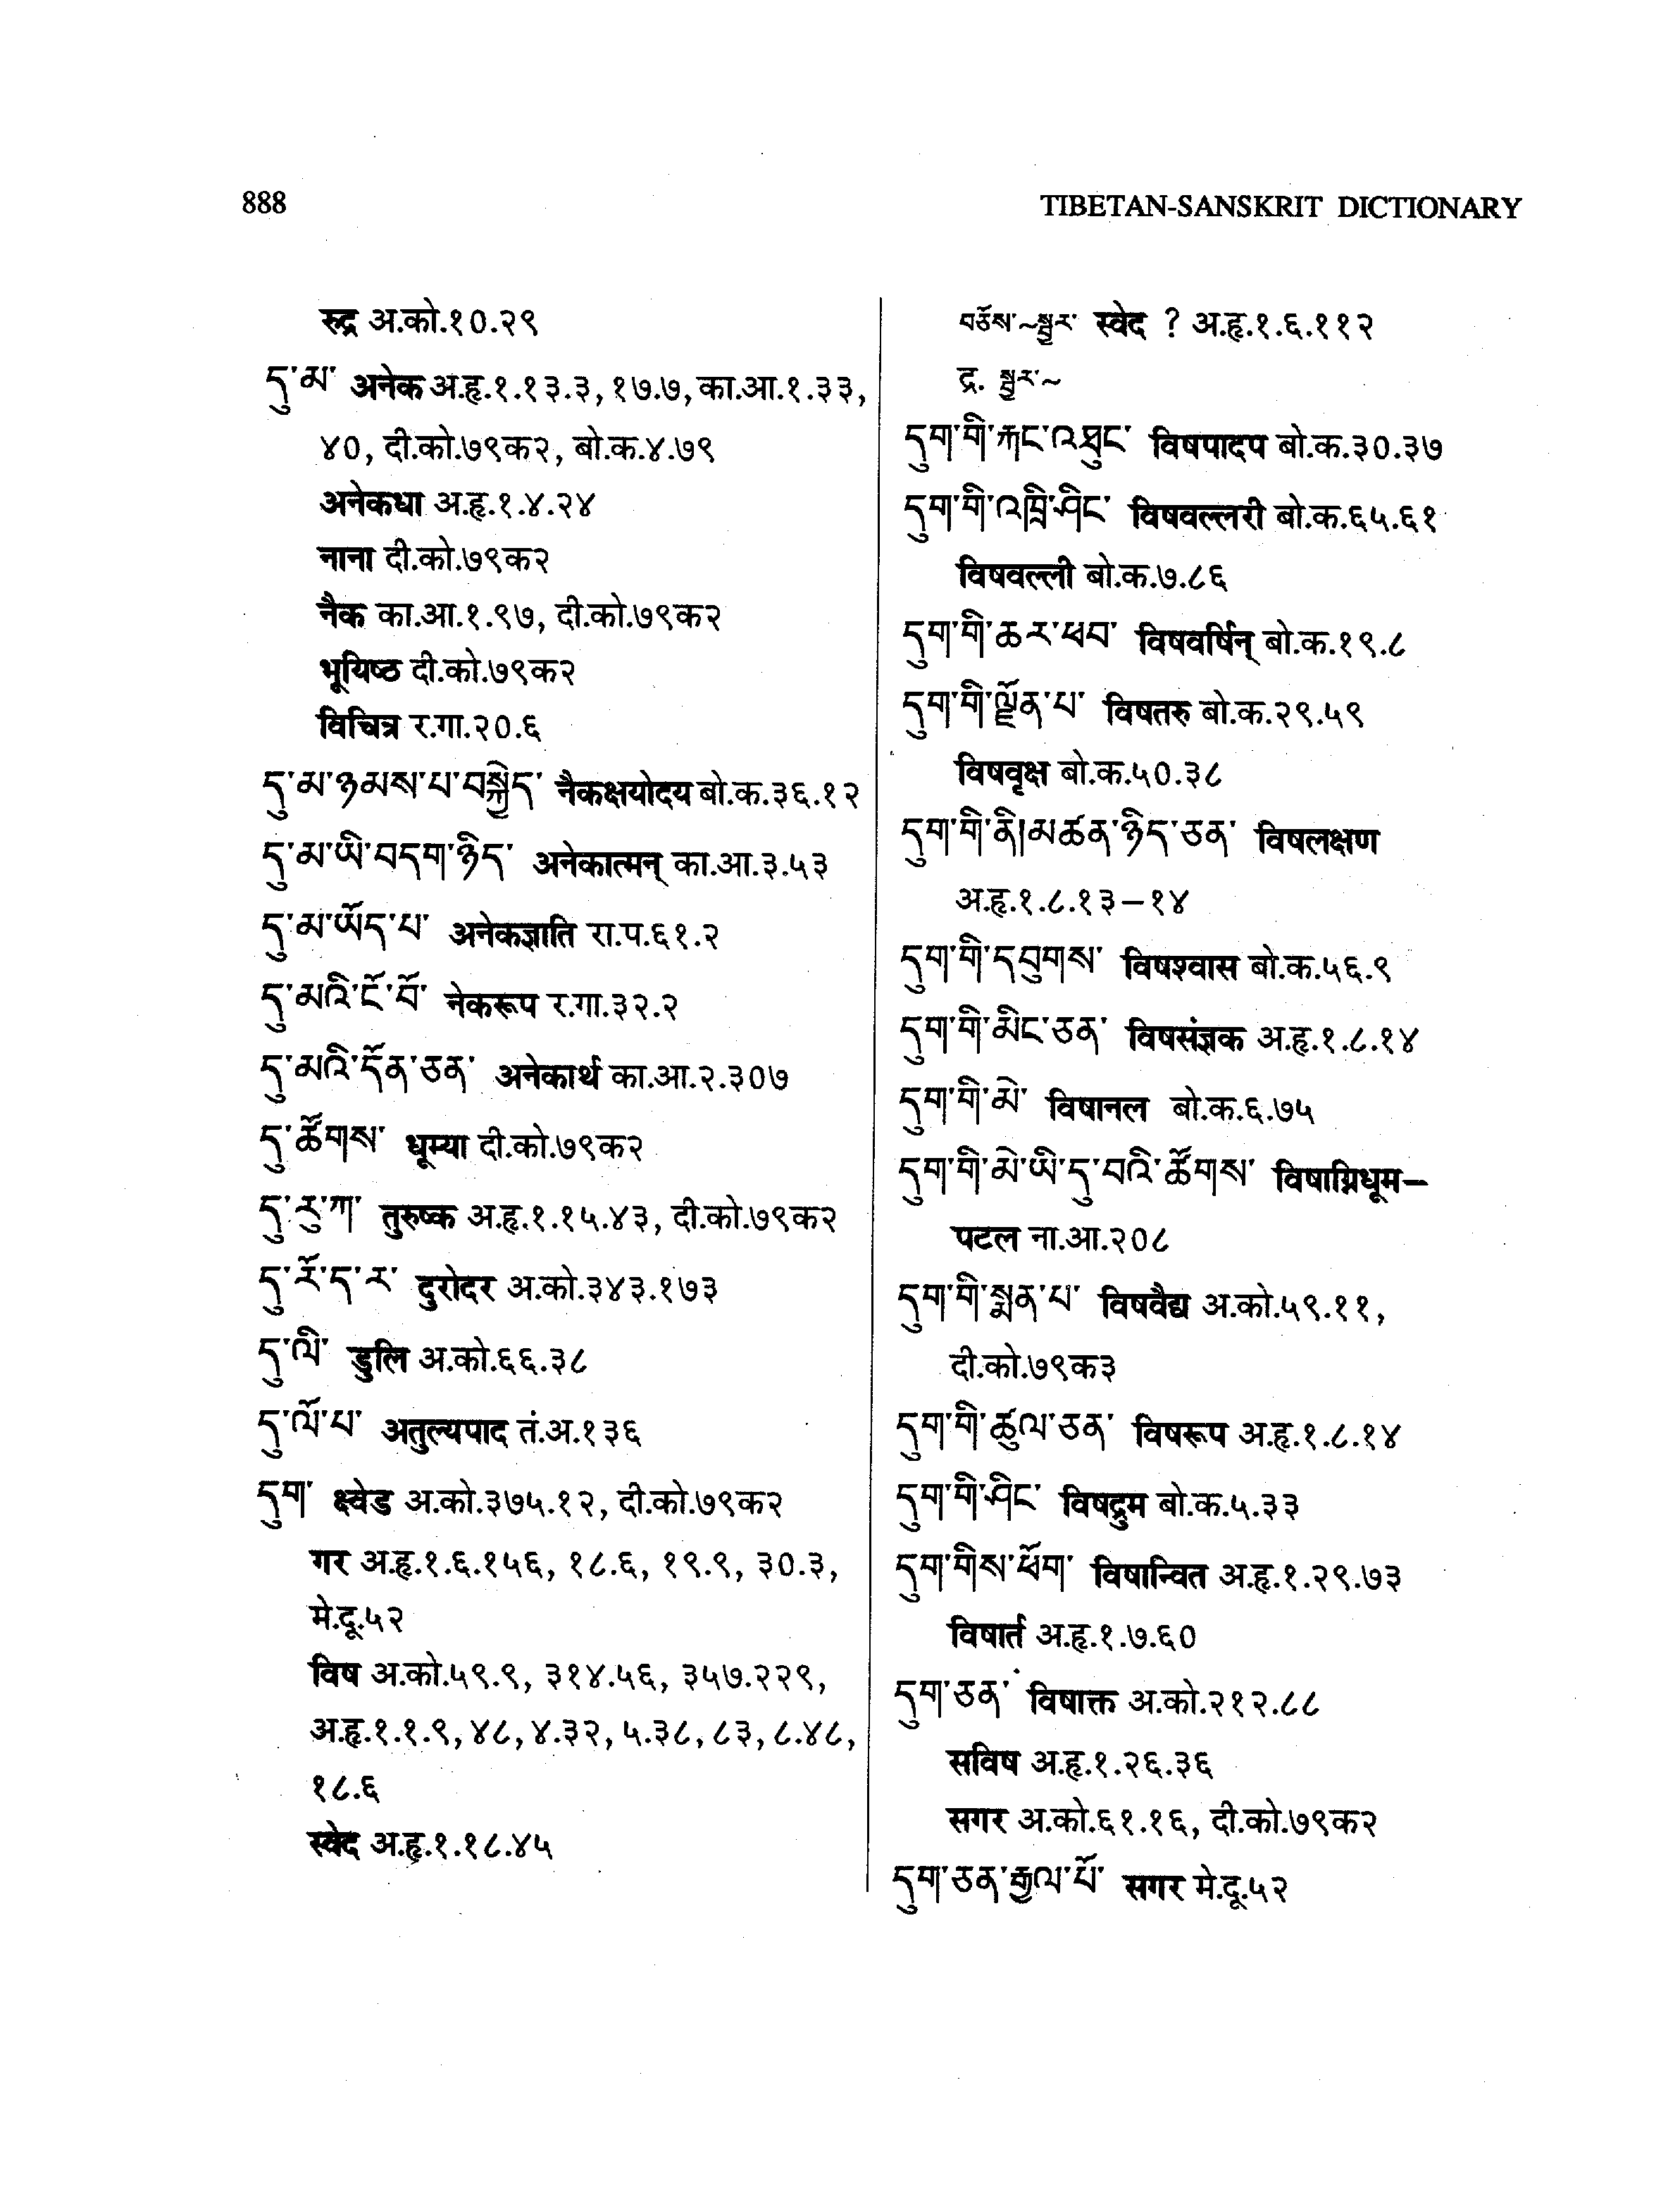 888
TIBETAN-SANSKRIT DICTIONARY
रुद्र अ.को.१०.२९
དུ་མ་ अनेक अ.हृ.१.१३.३, १७.७, का.आ.१.३३,
४०, दी.को.७९क२, बो.क.४.७९
अनेकधा अ.हृ.१.४.२४
नाना दी.को.७९क२
नैक का.आ.१.९७, दी.को.७९क२
भूयिष्ठ दी.को.७९क२
विचित्र र.गा.२०.६
དུ་མ་ཉམས་པ་བསྐྱེད་ नैकक्षयोदय बो.क.३६.१२
དུ་མ་ཡི་བདག་ཉིད་ अनेकात्मन् का.आ.३.५३
དུ་མ་ཡོད་པ་ अनेकज्ञाति रा.प.६१.२
དུ་མའི་ངོ་བོ་ नेकरूप र.गा.३२.२
དུ་མའི་དོན་ཅན་ अनेकार्थ का.आ.२.३०७
དུ་ཚོགས་ धूम्या दी.को.७९क२
དུ་རུ་ཀ་ तुरुष्क अ.हृ.१.१५.४३, दी.को.७९क२
དུ་རོ་ད་ར་ दुरोदर अ.को.३४३.१७३
དུ་ལི་ डुलि अ.को.६६.३८
དུ་ལོ་པ་ अतुल्यपाद तं.अ.१३६
དུག་ क्ष्वेड अ.को.३७५.१२, दी.को.७९क२
गर अ.हृ.१.६.१५६, १८.६, १९.९, ३०.३,
मे.दू.५२
विष अ.को.५९.९, ३१४.५६, ३५७.२२९,
अ.हृ.१.१.९, ४८, ४.३२, ५.३८, ८३, ८.४८,
१८.६
स्वेद अ.हृ.१.१८.४५
བཅོས་~སྦྱར་ स्वेद ? अ.हृ.१.६.११२
द्र. སྦྱར་~
དུག་གི་རྐང་འཐུང་ विषपादप बो.क.३०.३७
དུག་གི་འཁྲི་ཤིང་ विषवल्लरी बो.क.६५.६१
विषवल्ली बो.क.७.८६
དུག་གི་ཆར་ཕབ་ विषवर्षिन् बो.क.१९.८
དུག་གི་ལྗོན་པ་ विषतरु बो.क.२९.५९
विषवृक्ष बो.क.५०.३८
དུག་གི་ནི།མཚན་ཉིད་ཅན་ विषलक्षण
अ.हृ.१.८.१३–१४
དུག་གི་དབུགས་ विषश्वास बो.क.५६.९
དུག་གི་མིང་ཅན་ विषसंज्ञक अ.हृ.१.८.१४
དུག་གི་མེ་ विषानल बो.क.६.७५
དུག་གི་མེ་ཡི་དུ་བའི་ཚོགས་ विषाग्निधूम–
पटल ना.आ.२०८
དུག་གི་སྨན་པ་ विषवैद्य अ.को.५९.११,
दी.को.७९क३
དུག་གི་ཚུལ་ཅན་ विषरूप अ.हृ.१.८.१४
དུག་གི་ཤིང་ विषद्रुम बो.क.५.३३
དུག་གིས་ཕོག་ विषान्वित अ.हृ.१.२९.७३
विषार्त अ.हृ.१.७.६०
དུག་ཅན་ विषाक्त अ.को.२१२.८८
सविष अ.हृ.१.२६.३६
सगर अ.को.६१.१६, दी.को.७९क२
དུག་ཅན་རྒྱལ་པོ་ सगर मे.दू.५२